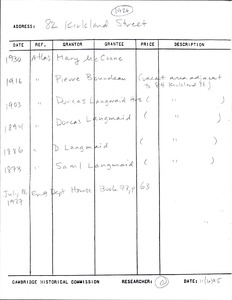 1926
ADDRESS: 82 Kirkland Street
DATE REF. GRANTOR GRANTEE PRICE DESCRIPTION
1930 Atlas Mary McCrone
1916 " Pierre (vacant area adjacent
to 84 Kirkland St)
1903 " Dorcas Langmaid ( " )
1894 " Dorcas Langmaid ( " )
1886 " D Langmaid ( " )
1873 " Saml Langmaid ( " )
July 16 Eng Dept House Book 77, p 63
1927
CAMBRIDGE HISTORICAL COMMISSION RESEARCHER: DATE: